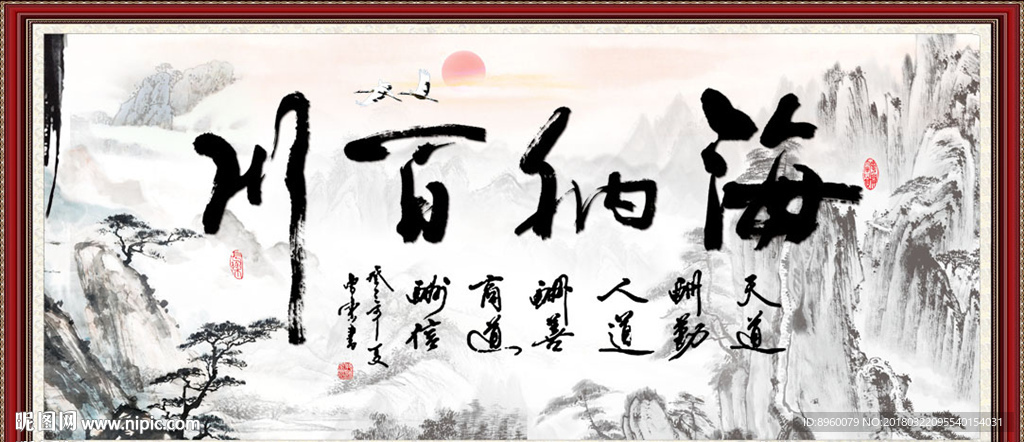 海纳百川
天道
酬勤
人道
酬善
商道
酬信
癸巳年夏
书
昵图网 www.nipic.com
ID:8960079 NO:20180322095540154031